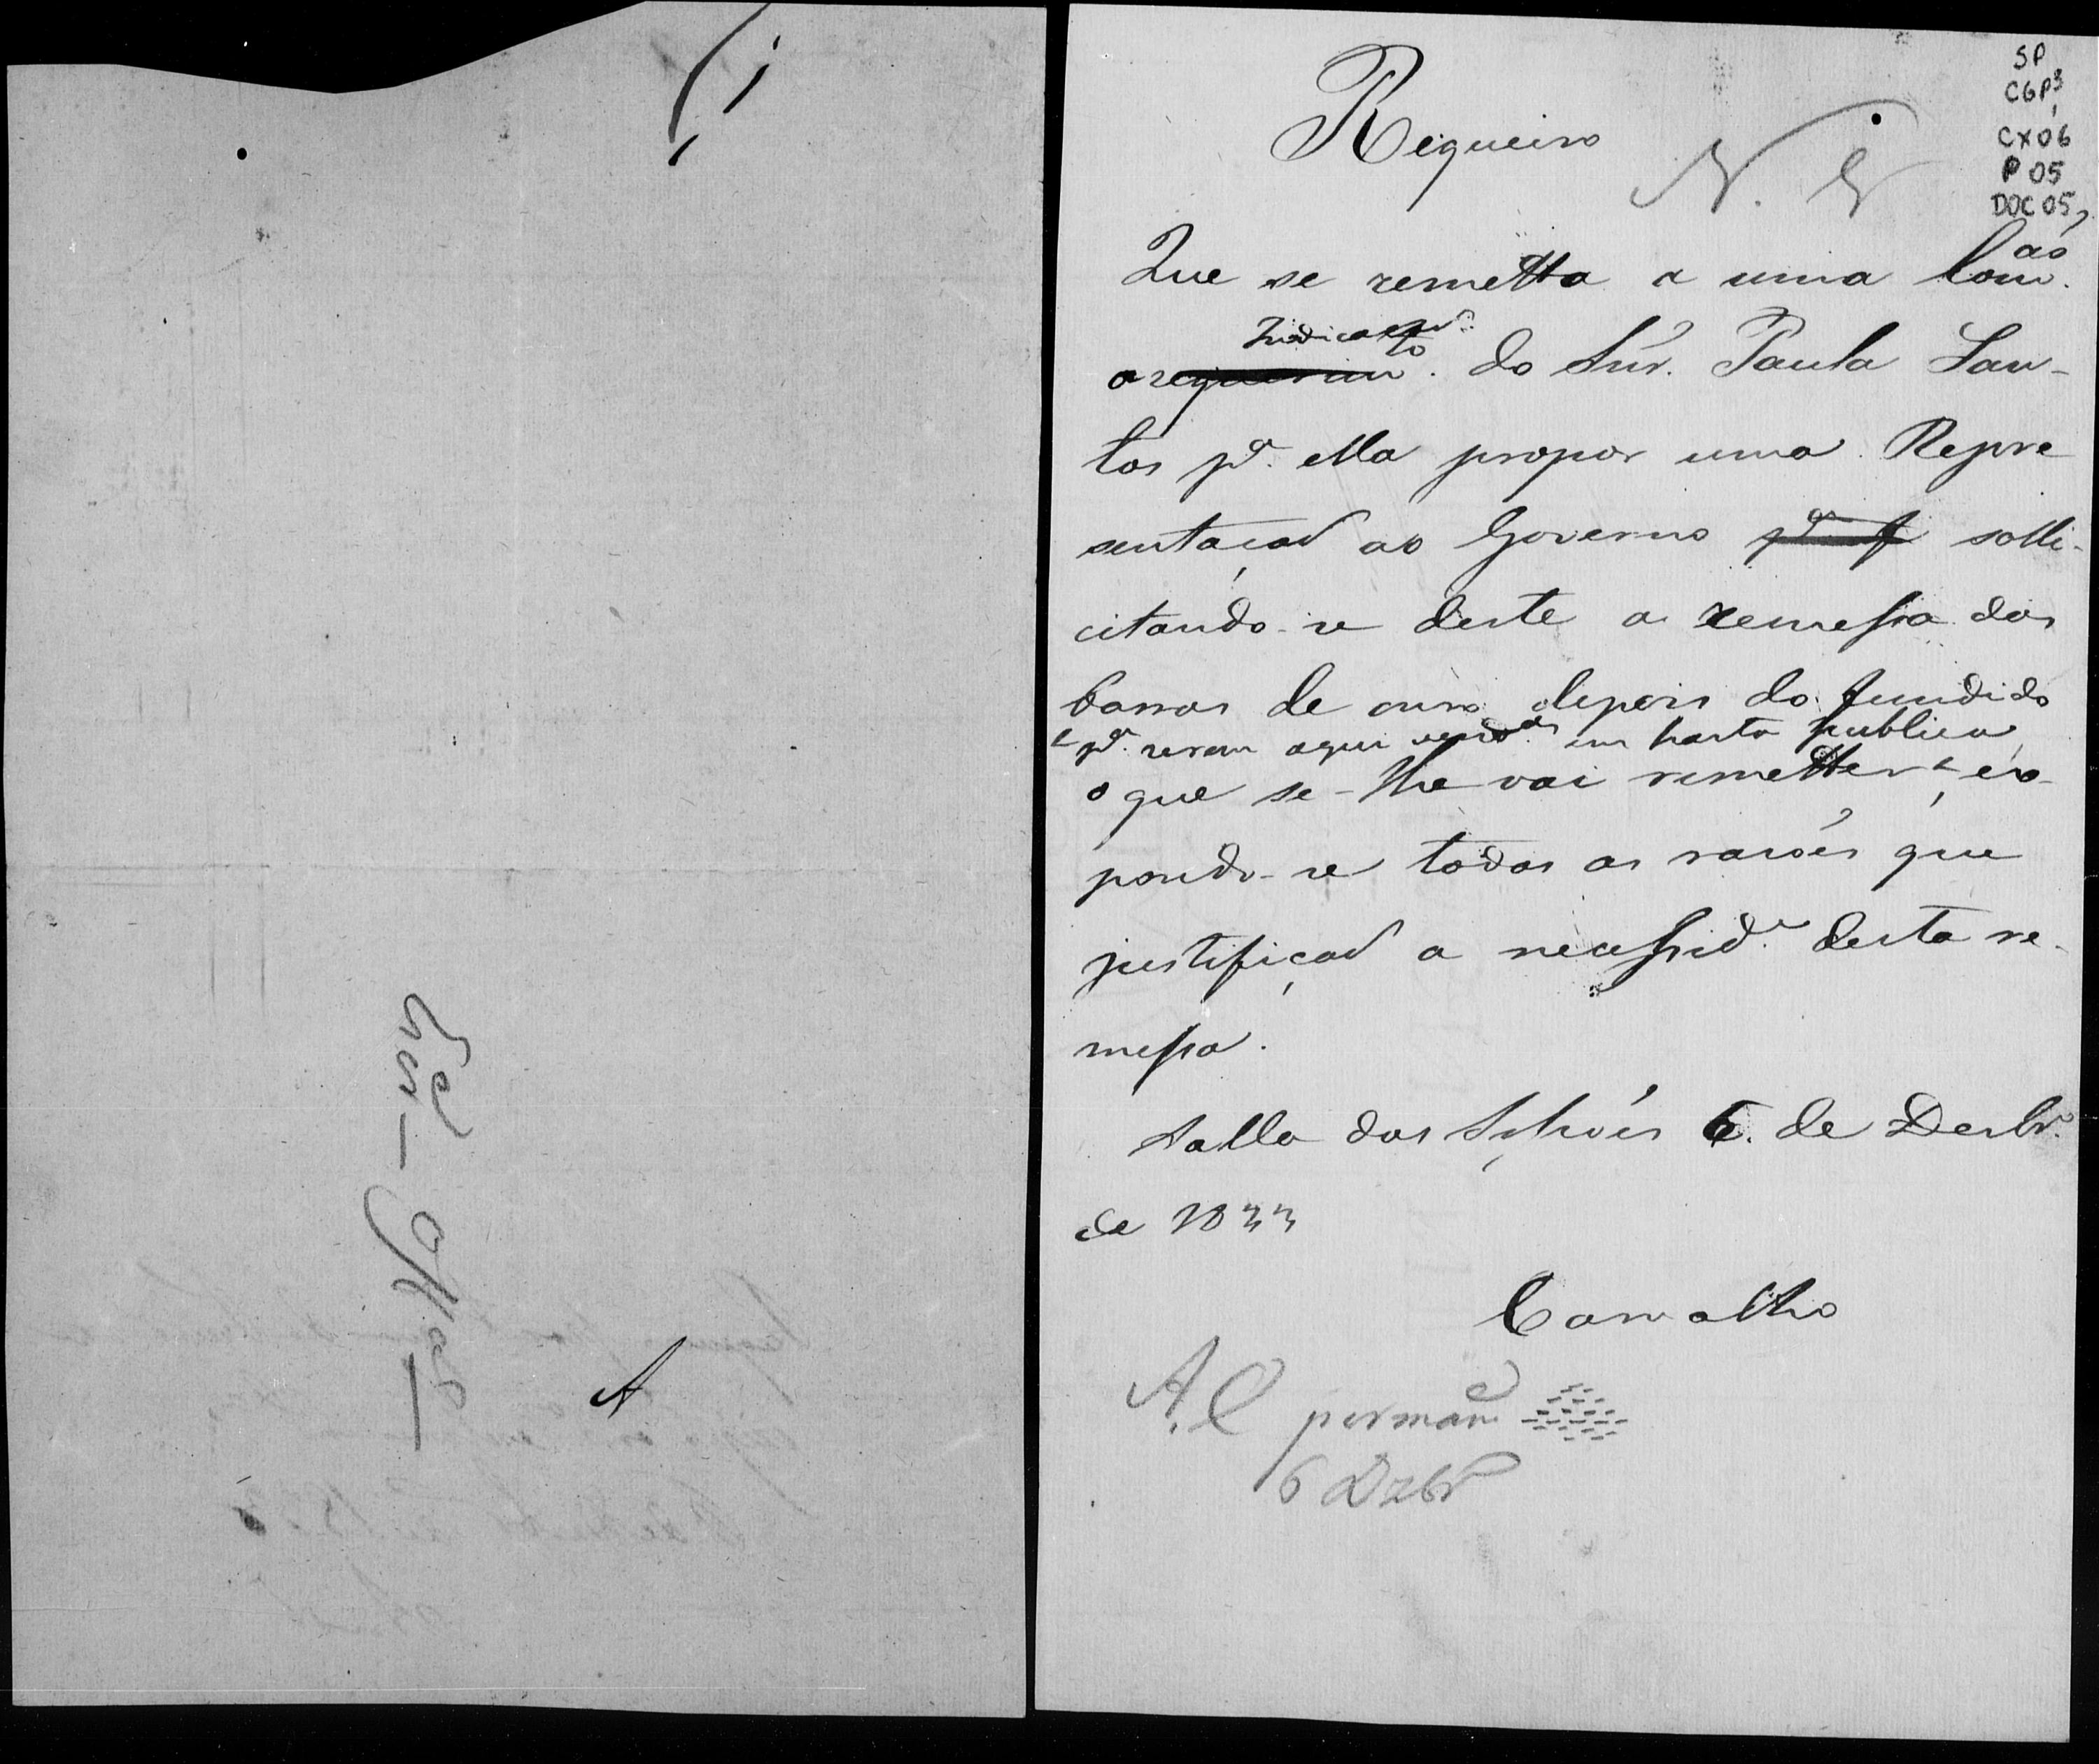 SP
CGP3,
CX06
P 05
DOC 05,
Requeiro
N. 6
Que se remetta a uma Com.ão
Indicação
o requerim.to do Snr. Paula Sou-
tos p.a ella propor uma Repre
sentação ao Governo p.a q solli-
citando-se deste a remessa das
barras de ouro depois do fundido
e p.a serem aqui vend.as em hasta publica,
o que se-lhe vai remetter, e ex-
pondo-se todas as rasões que
justifição a necessid.e desta re-
messa.
Salla das Sessões 6. de Dezbr.o
de 1833
Carvalho
A. C permane
6 Dzbr
A